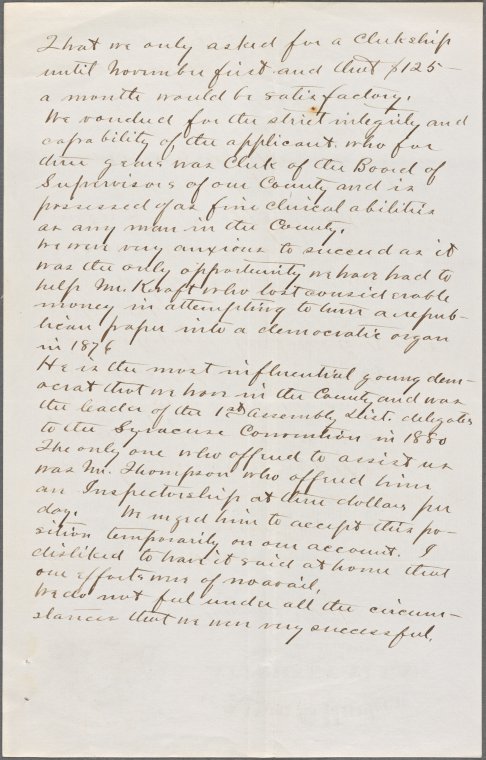 That we only asked for a Clerkship
until November first and that $125-
a month would be satisfactory.
We vouched for the strict integrity and
capability of the applicant. who for
three years was Clerk of the Board of
Supervisors of our County and is
possessed of as fine clerical abilities
as any man in the County.
We were very anxious to succeed as it
was the only opportunity we have had to
help Mr. Kraft who lost considerable
money in attempting to turn a repub-
lican paper into a democratic organ
in 1876
He is the most influential young dem-
ocrat that we have in the County and was
the leader of the 1st Assembly Dist. delegates
to the Syracuse Convention in 1880
The only one who offered to assist us
was Mr. Thompson who offered him
an Inspectorship at three dollars per
day. We urged him to accept this po-
sition temporarily on our account. I
disliked to have it said at home that
our efforts were of no avail.
We do not feel under all the circum-
stances that we were very successful.